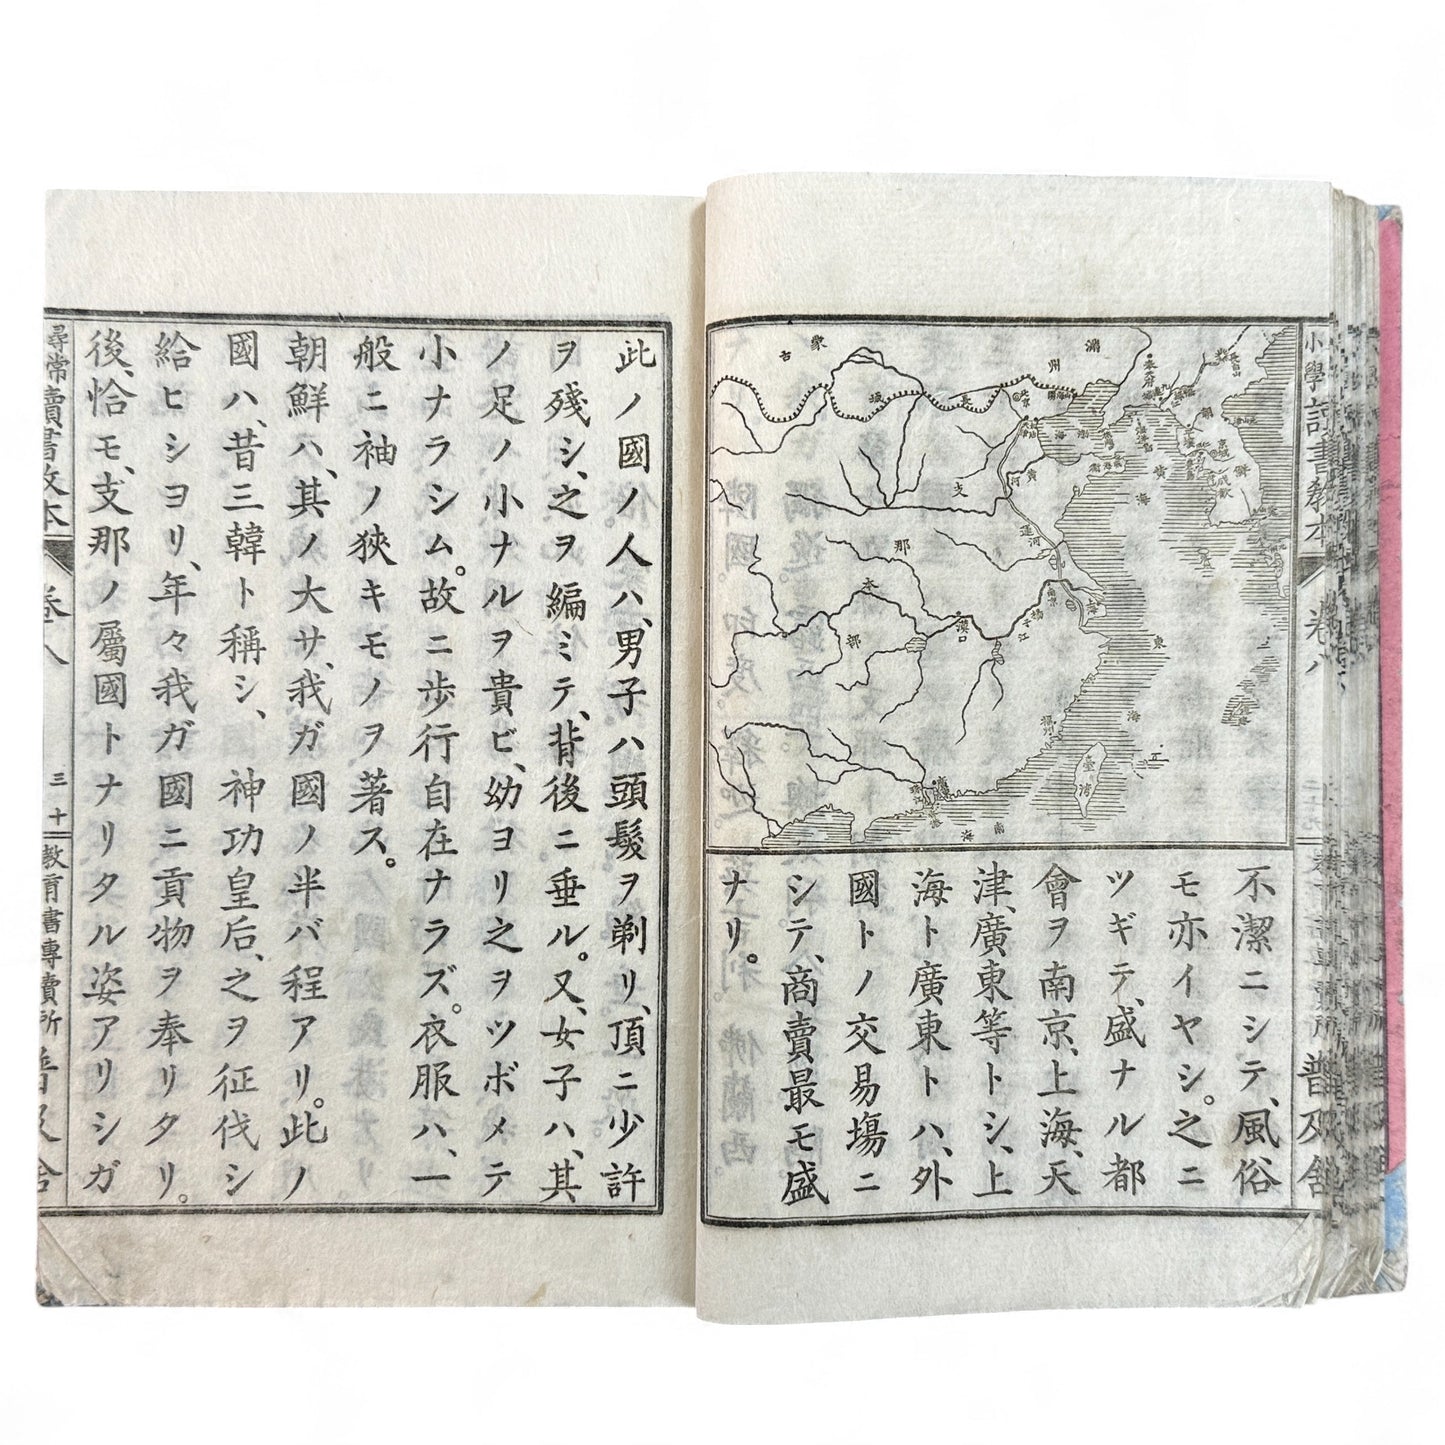 小學讀書敎本
卷八
普及舍
蒙古
滿州
長
城
北京
黃河
渤海
黃海
朝
鮮
京城
支
那
本
部
運河
南京
揚子江
漢口
上海
東
海
福州
臺灣
南
海
不潔ニシテ、風俗
モ亦イヤシ。之ニ
ツギテ、盛ナル都
會ヲ南京、上海、天
津、廣東等トシ、上
海ト廣東トハ、外
國トノ交易塲ニ
シテ、商賣最モ盛
ナリ。
此ノ國ノ人ハ、男子ハ頭髮ヲ剃リ、頂ニ少許
ヲ殘シ、之ヲ編ミテ、背後ニ垂ル。又、女子ハ、其
ノ足ノ小ナルヲ貴ビ、幼ヨリ之ヲツボメテ
小ナラシム。故ニ歩行自在ナラズ。衣服ハ、一
般ニ袖ノ狹キモノヲ著ス。
朝鮮ハ、其ノ大サ、我ガ國ノ半バ程アリ。此ノ
國ハ、昔三韓ト稱シ、神功皇后、之ヲ征伐シ
給ヒシヨリ、年々我ガ國ニ貢物ヲ奉リタリ。
後、恰モ、支那ノ屬國トナリタル姿アリシガ
尋常讀書敎本
卷八
三十
敎育書專賣所
普及舍